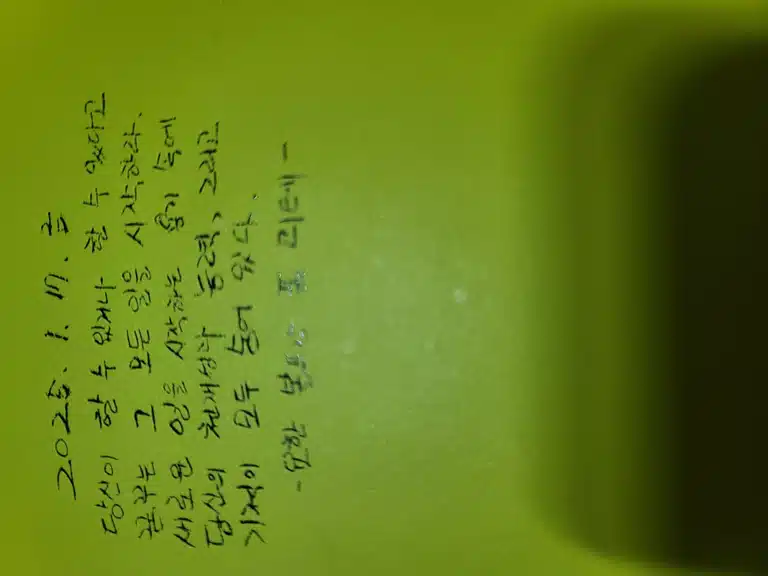 2025. 1. 17. 금
당신이 할 수 있거나 할 수 있다고
꿈꾸는 그 모든 일을 시작하라.
새로운 일을 시작하는 용기 속에
당신의 천재성과 능력, 그리고
기적이 모두 숨어 있다.
- 요한 볼프강 폰 괴테 -